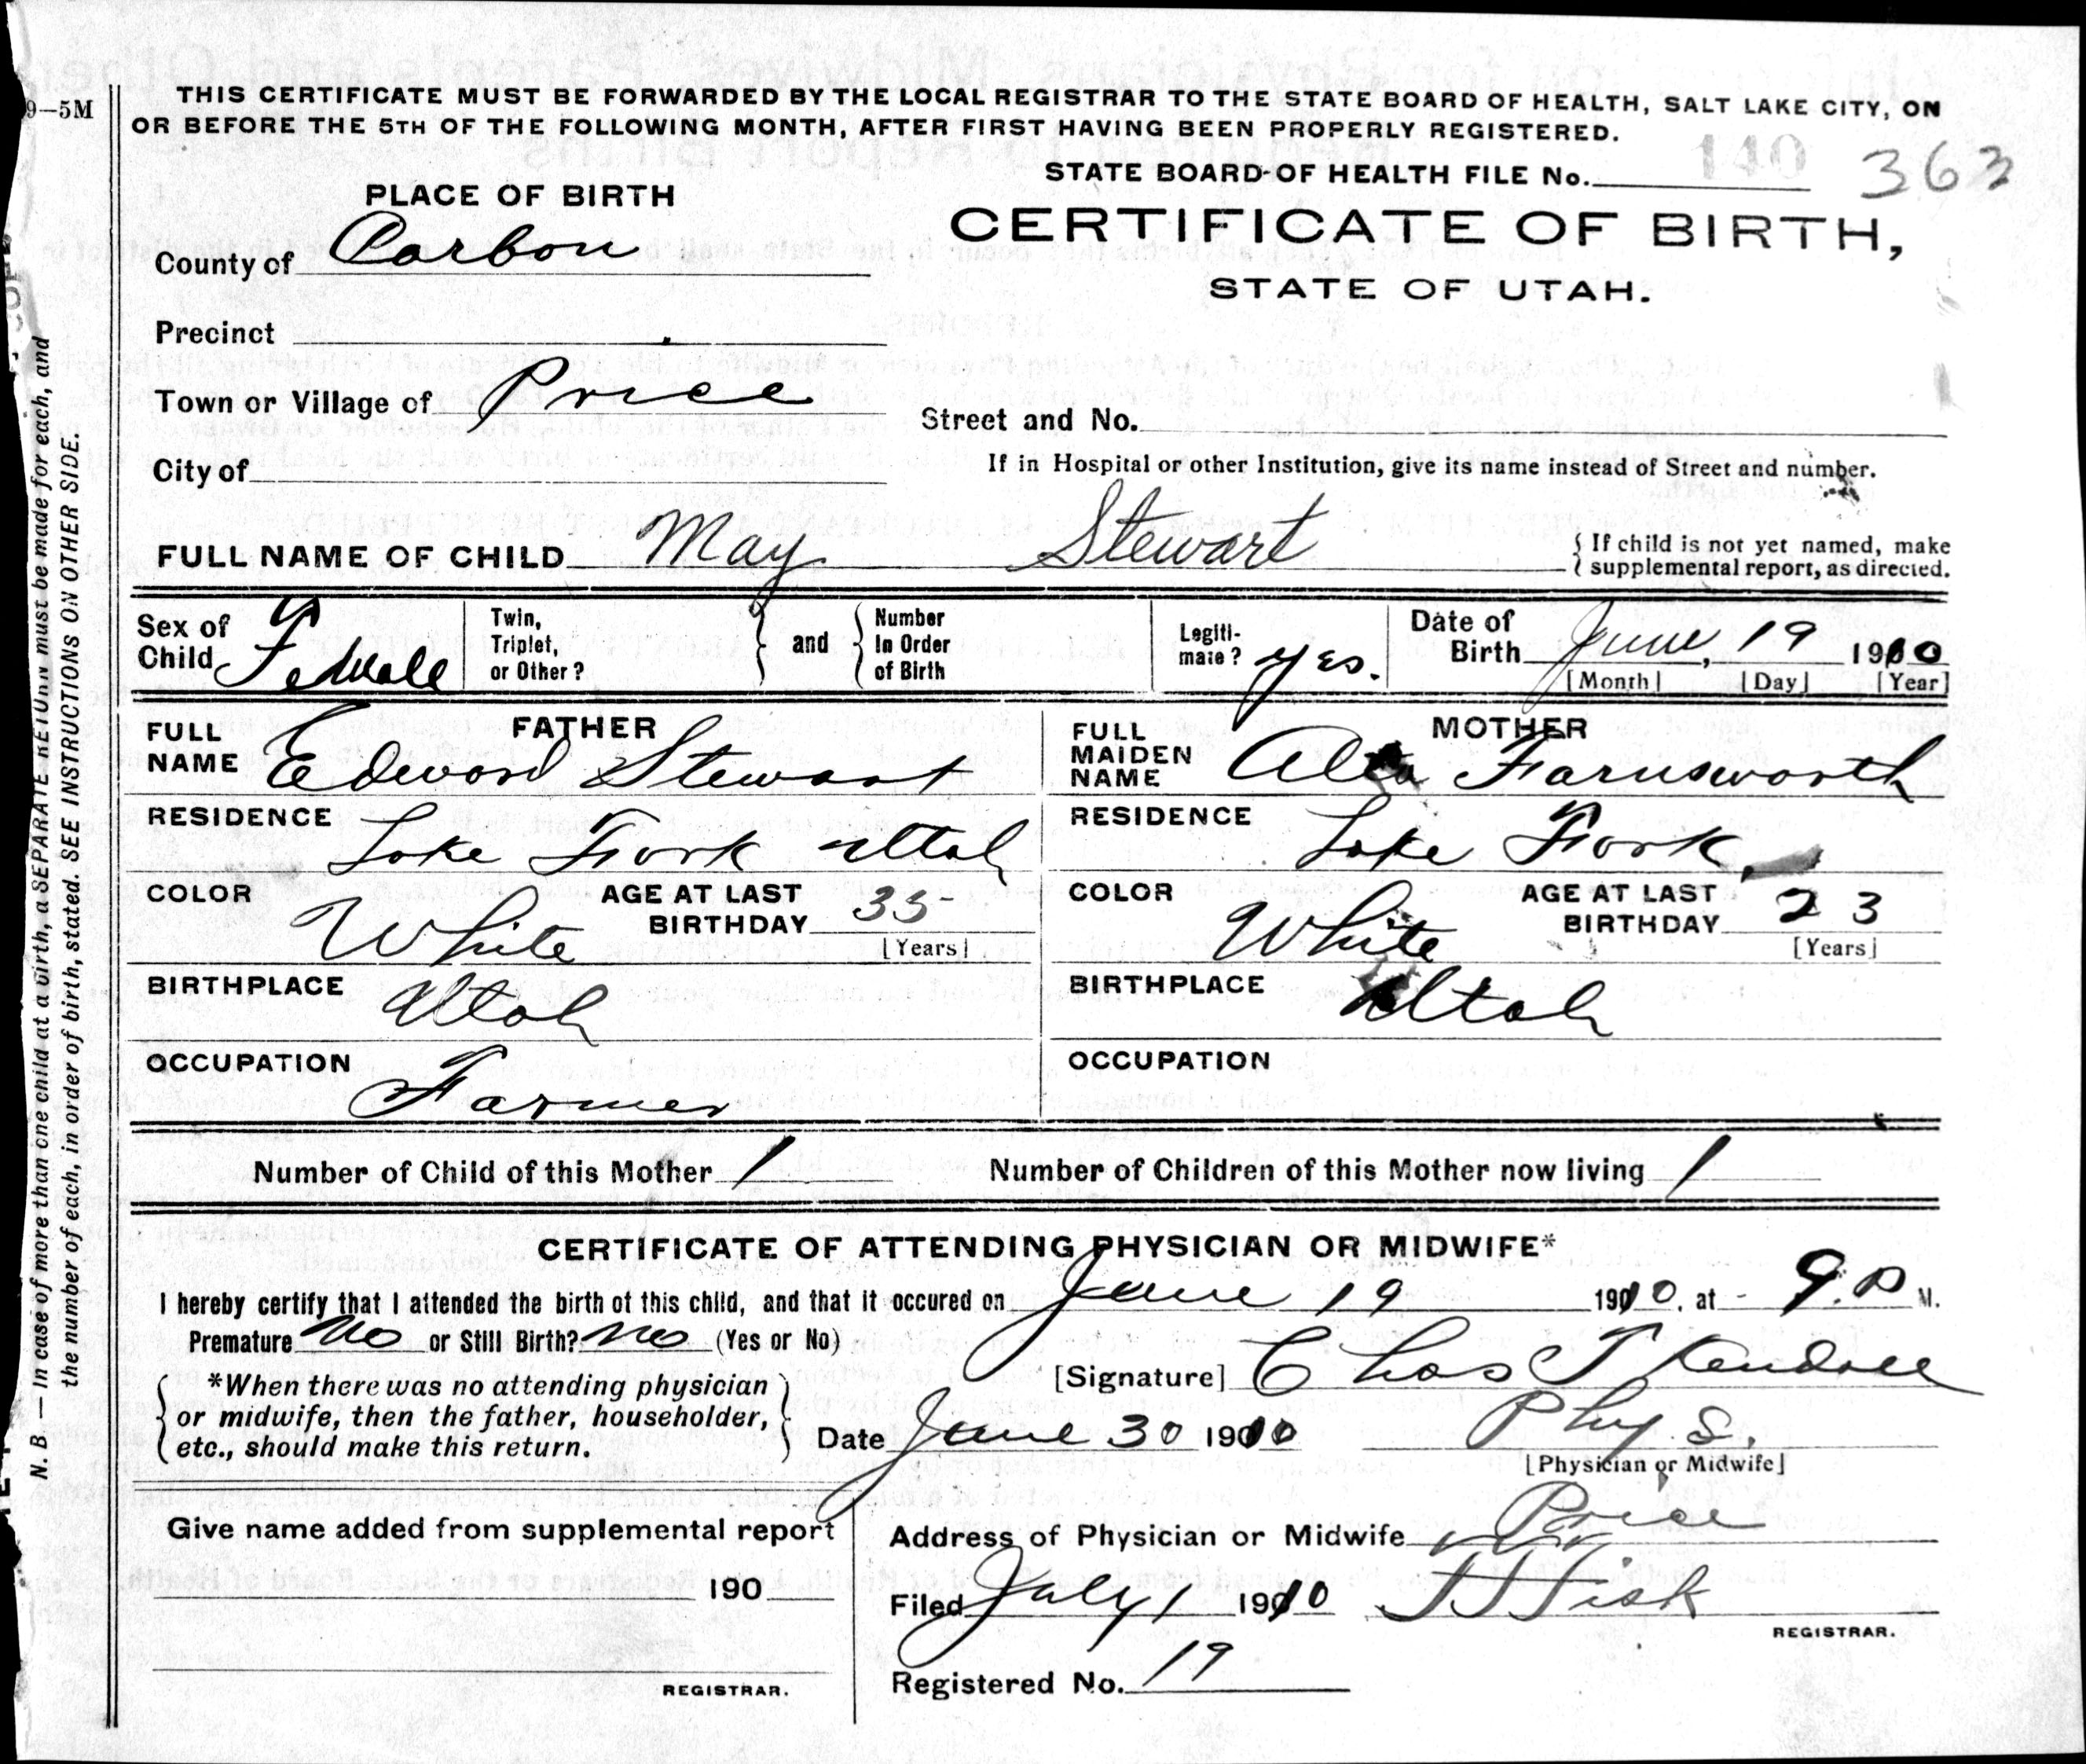 9—5M
THIS CERTIFICATE MUST BE FORWARDED BY THE LOCAL REGISTRAR TO THE STATE BOARD OF HEALTH, SALT LAKE CITY, ON
OR BEFORE THE 5TH OF THE FOLLOWING MONTH, AFTER FIRST HAVING BEEN PROPERLY REGISTERED.
STATE BOARD OF HEALTH FILE No. 140 363
PLACE OF BIRTH
CERTIFICATE OF BIRTH,
STATE OF UTAH.
County of Carbon
Precinct
Town or Village of Price
Street and No.
City of
If in Hospital or other Institution, give its name instead of Street and number.
FULL NAME OF CHILD May Stewart
{ If child is not yet named, make
supplemental report, as directed.
Sex of Child Female
Twin, Triplet, or Other? } and { Number In Order of Birth
Legiti- mate? yes.
Date of Birth June, 19 1910
[Month] [Day] [Year]
FATHER
FULL NAME Edword Stewart
RESIDENCE Lake Fork Utah
COLOR White
AGE AT LAST BIRTHDAY 35
[Years]
BIRTHPLACE Utah
OCCUPATION Farmer
MOTHER
FULL MAIDEN NAME Farnsworth
RESIDENCE Lake Fork
COLOR White
AGE AT LAST BIRTHDAY 23
[Years]
BIRTHPLACE Utah
OCCUPATION
Number of Child of this Mother 1
Number of Children of this Mother now living 1
CERTIFICATE OF ATTENDING PHYSICIAN OR MIDWIFE*
I hereby certify that I attended the birth of this child, and that it occured on June 19 1910, at 9.P M.
Premature no or Still Birth? no (Yes or No)
[Signature] Chas T Kendall
*When there was no attending physician
or midwife, then the father, householder,
etc., should make this return.
Date June 30 1910 Phys.
[Physician or Midwife]
Give name added from supplemental report
190
REGISTRAR.
Address of Physician or Midwife Price
Filed July 1 1910 Fisk
REGISTRAR.
Registered No. 19
N. B. — In case of more than one child at a birth, a SEPARATE RETURN must be made for each, and
the number of each, in order of birth, stated. SEE INSTRUCTIONS ON OTHER SIDE.